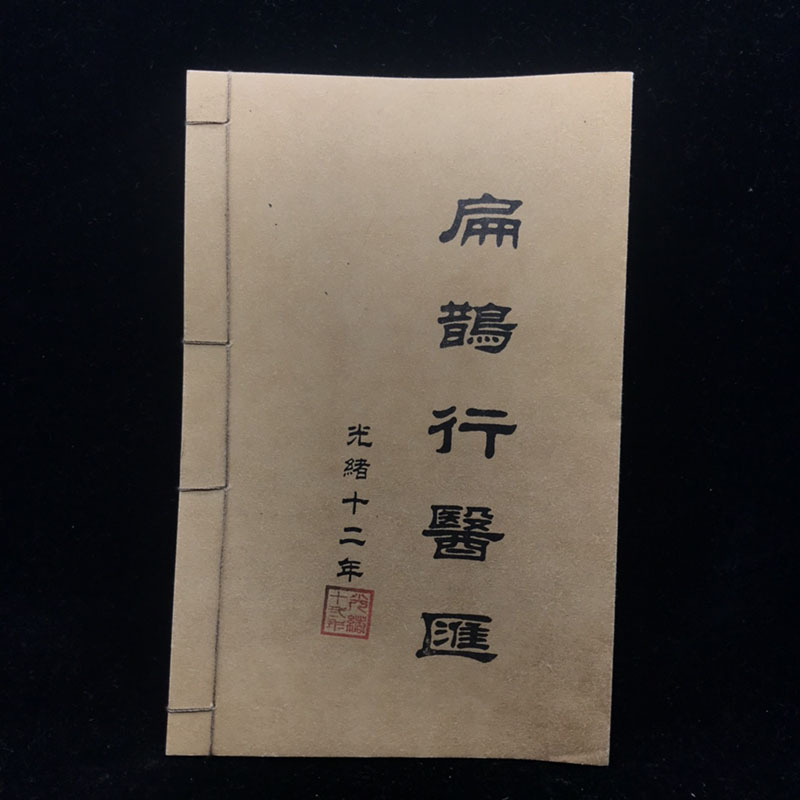 扁鵲行醫匯
光緒十二年
光緒
十二年